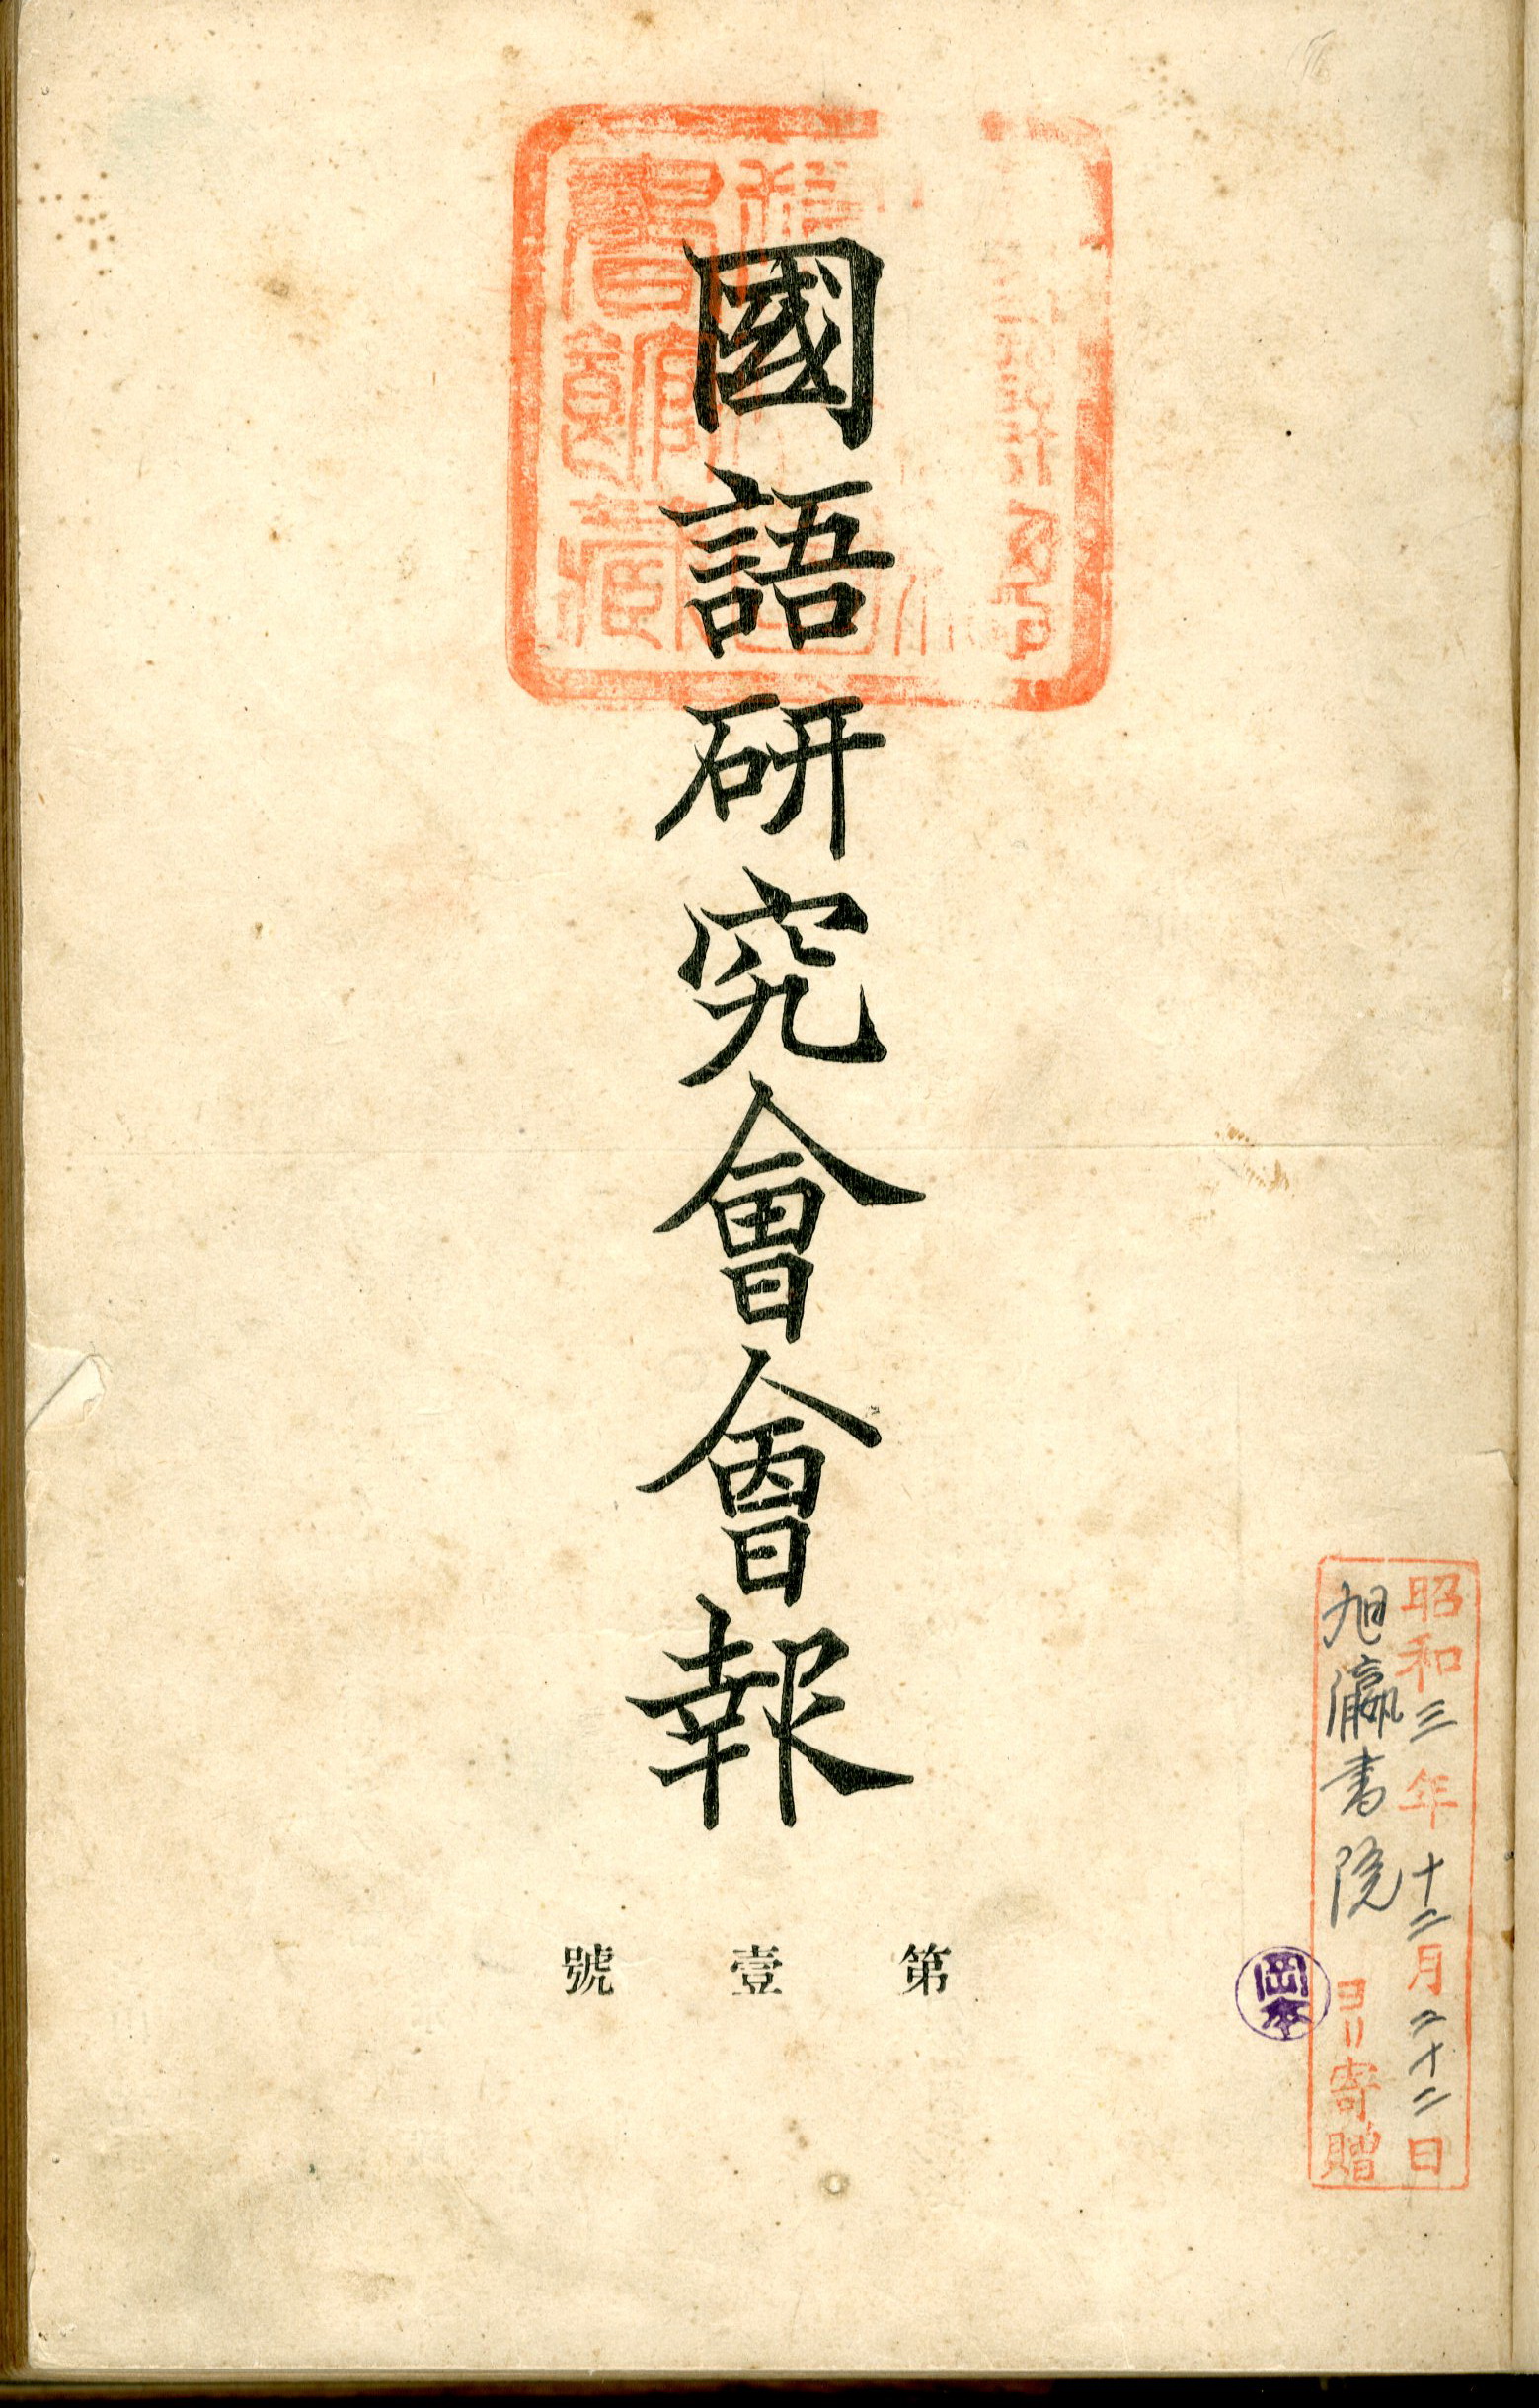 國語研究會會報
第壹號
昭和三年十二月二十二日
旭瀛書院ヨリ寄贈
岡本
書館藏